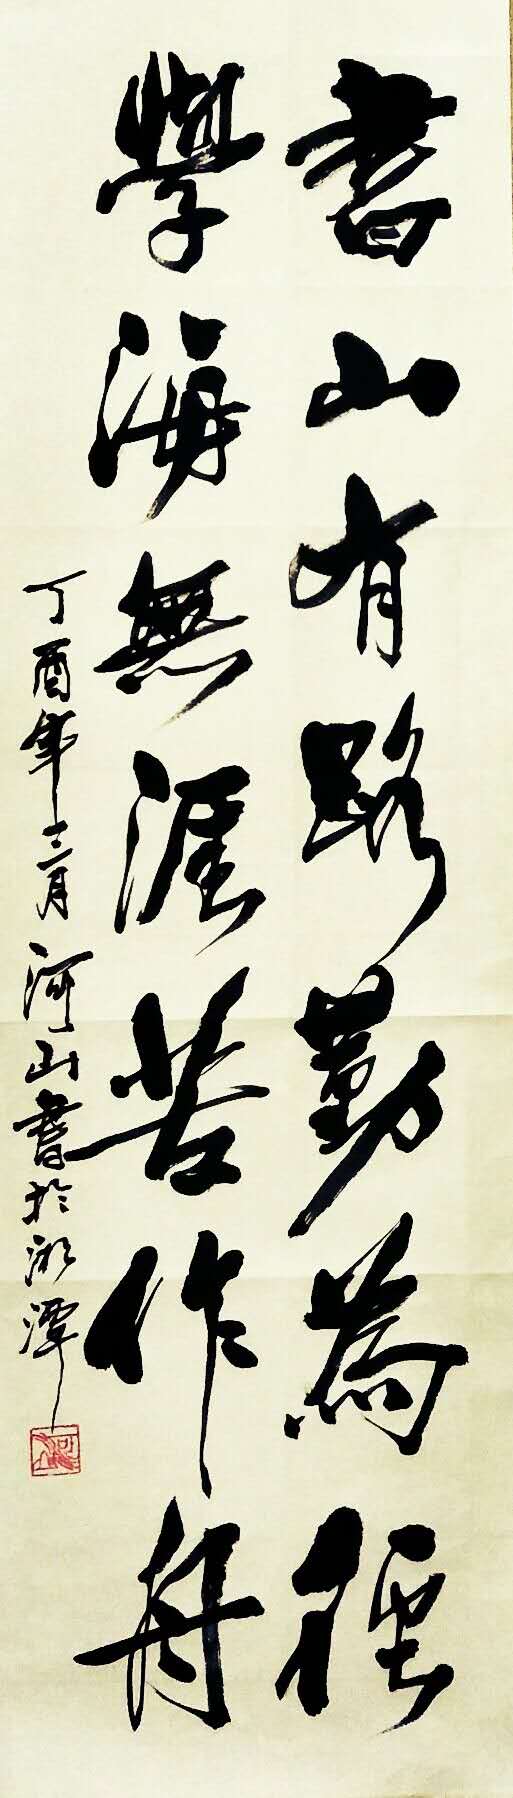 書山有路勤為徑
學海無涯苦作舟
丁酉年三月河山書於湘潭